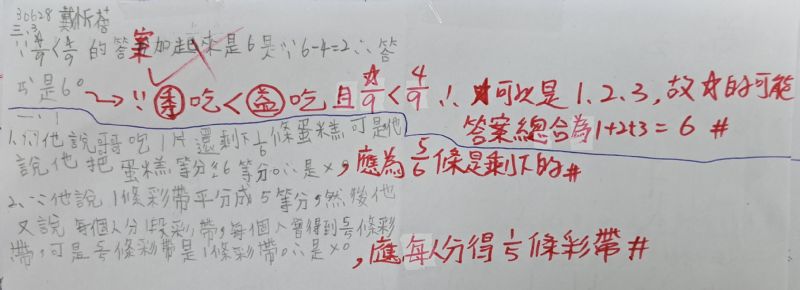 30628 戴忻蓓
三、3
∵4/9<4/9 的答案加起來是6是∵6-4=2∴答
案
是6。→∵秉吃<盈吃且☆/9<4/9∴☆可以是1、2、3,故☆的可能
答案總合為1+2+3=6 #
一、1
1.∵他說哥哥吃1片還剩下1/6條蛋糕可是他
說他把蛋糕等分成6等分。∴是×。,應為5/6條是剩下的#
2.∵他說1條彩帶平分成5等分,然後他
又說每個人分1段彩帶,每個人會得到5/5條彩
帶,可是5/5條彩帶是1條彩帶。∴是×。,應每人分得1/5條彩帶#